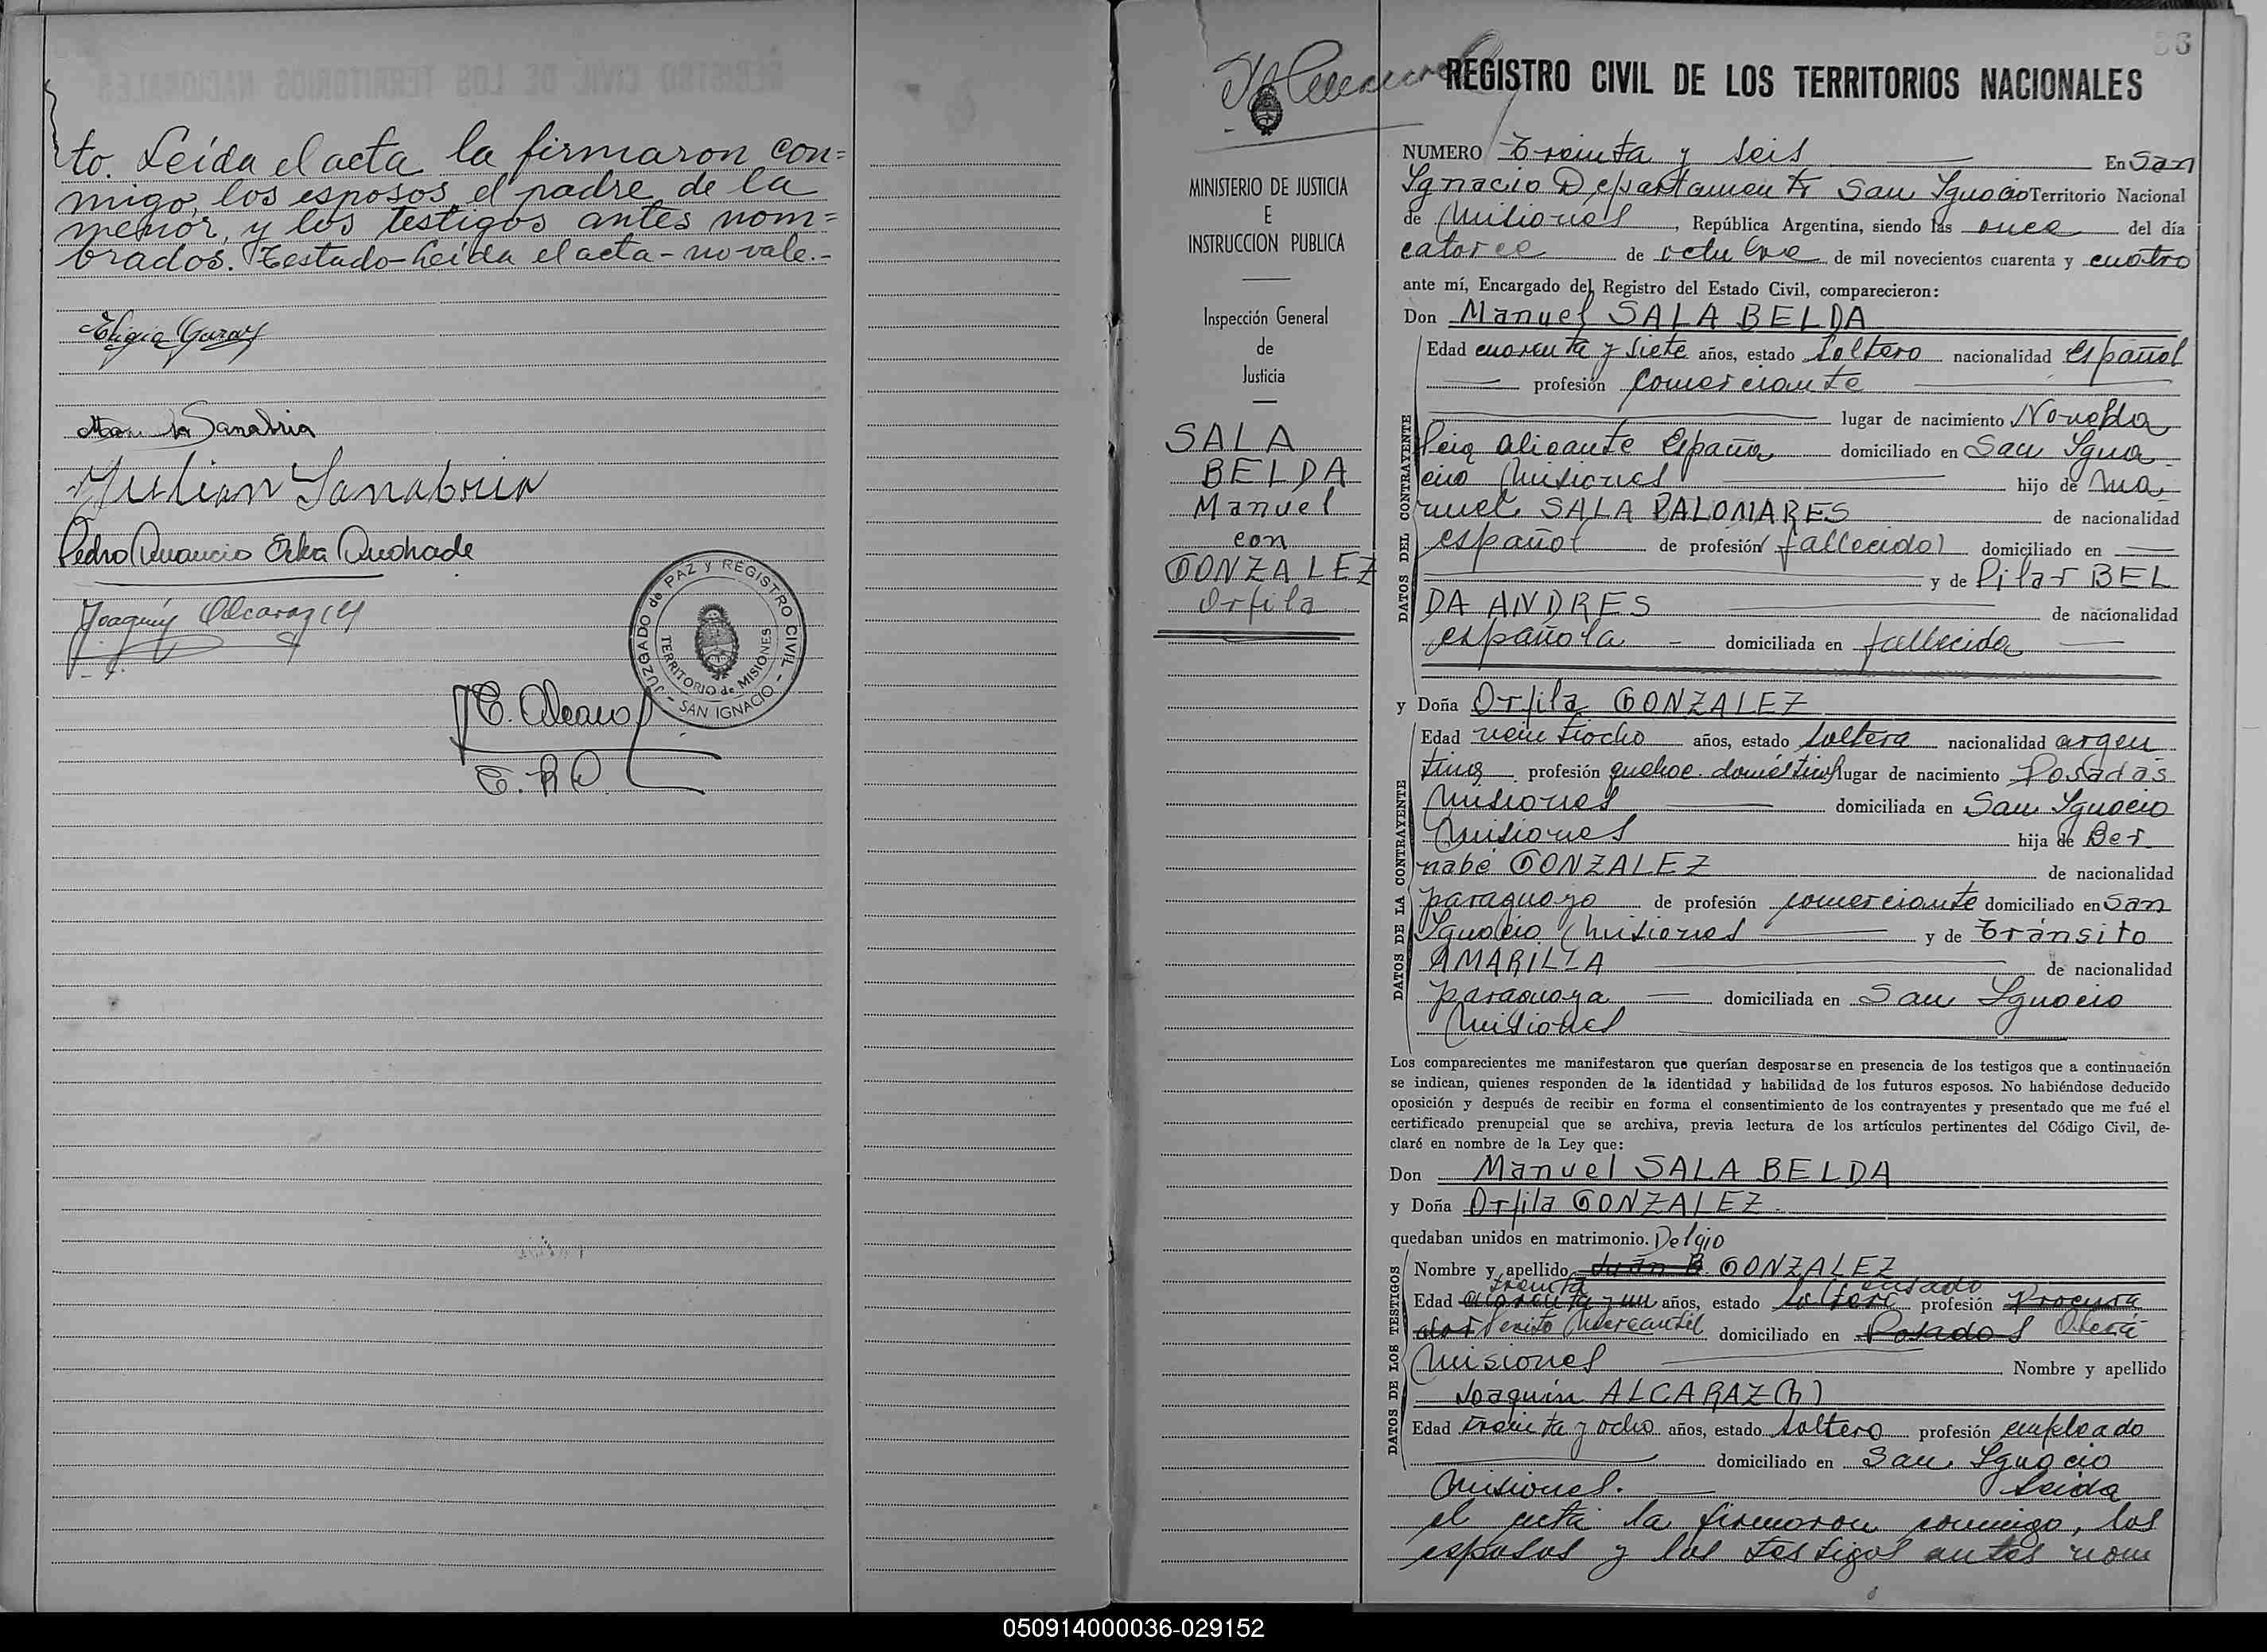 to. Leída el acta la firmaron con=
migo, los esposos, el padre de la
menor, y los testigos antes nom=
brados. Testado-Leída el acta-no vale.-
Julian Sanabria
Pedro Erka Andrade
Joaquín Alcaraz (h)
JUZGADO de PAZ y REGISTRO CIVIL - SAN IGNACIO -
TERRITORIO de MISIONES
MINISTERIO DE JUSTICIA
E
INSTRUCCION PUBLICA
Inspección General
de
Justicia
SALA
BELDA
Manuel
con
GONZALEZ
Orfila
36
REGISTRO CIVIL DE LOS TERRITORIOS NACIONALES
NUMERO Treinta y seis En San
Ignacio Departamento San Ignacio Territorio Nacional
de Misiones, República Argentina, siendo las once del día
catorce de octubre de mil novecientos cuarenta y cuatro
ante mí, Encargado del Registro del Estado Civil, comparecieron:
Don Manuel SALA BELDA
DATOS DEL CONTRAYENTE
Edad cuarenta y siete años, estado soltero nacionalidad español
profesión comerciante
lugar de nacimiento Novelda
Pcia Alicante España domiciliado en San Igna
cio Misiones hijo de Ma
nuel SALA PALOMARES de nacionalidad
español de profesión (fallecido) domiciliado en
y de Pilar BEL
DA ANDRES de nacionalidad
española - domiciliada en fallecida
y Doña Orfila GONZALEZ
DATOS DE LA CONTRAYENTE
Edad veintiocho años, estado soltera nacionalidad argen
tina profesión quehac. domésticos lugar de nacimiento Posadas
Misiones domiciliada en San Ignacio
Misiones hija de Ber
nabé GONZALEZ de nacionalidad
paraguayo de profesión comerciante domiciliado en San
Ignacio Misiones y de Tránsito
AMARILLA de nacionalidad
paraguaya domiciliada en San Ignacio
Misiones
Los comparecientes me manifestaron que querían desposarse en presencia de los testigos que a continuación
se indican, quienes responden de la identidad y habilidad de los futuros esposos. No habiéndose deducido
oposición y después de recibir en forma el consentimiento de los contrayentes y presentado que me fué el
certificado prenupcial que se archiva, previa lectura de los artículos pertinentes del Código Civil, de-
claré en nombre de la Ley que:
Don Manuel SALA BELDA
y Doña Orfila GONZALEZ.
quedaban unidos en matrimonio. Delgio
DATOS DE LOS TESTIGOS
Nombre y apellido Juan B. GONZALEZ
treinta casado
Edad cuarenta y un años, estado soltero profesión Procura
dor Perito Mercantil domiciliado en Posadas Oberá
Misiones Nombre y apellido
Joaquín ALCARAZ (h)
Edad treinta y ocho años, estado soltero profesión empleado
domiciliado en San Ignacio
Misiones. Leida
el acta la firmaron conmigo, los
esposos y los testigos antes nom
050914000036-029152